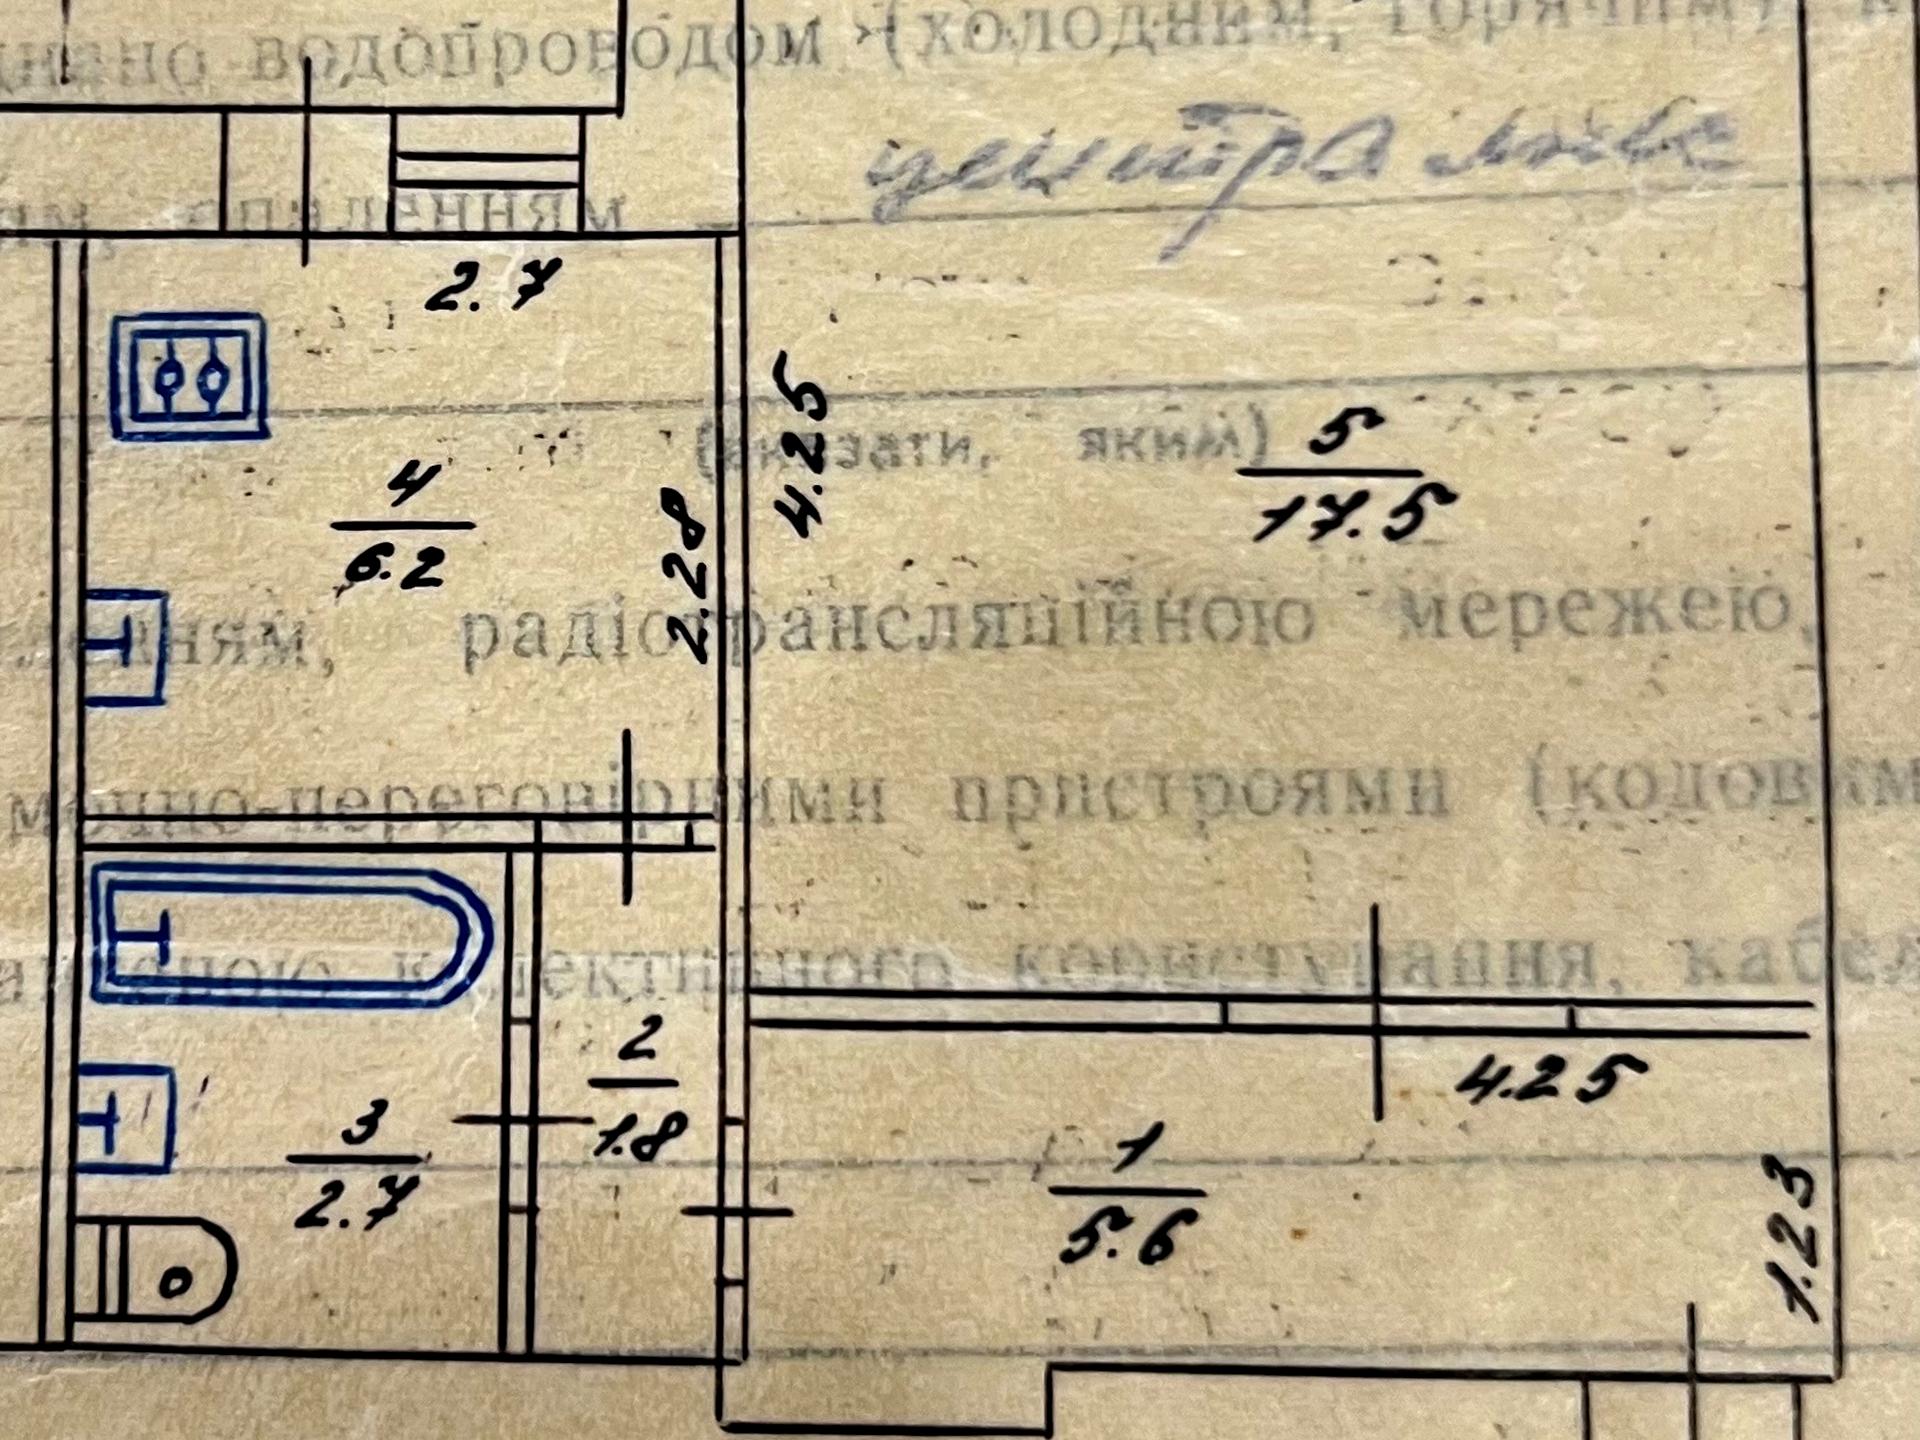 водопроводом (холодним, горячим,
центральне
опаленням
2.7
4.25
(вказати, яким)
5
17.5
4
6.2
2.28
радіотрансляційною мережею,
-переговірними пристроями (кодовим
колективного користування,
4.25
2
1.8
3
2.7
1
5.6
1.23